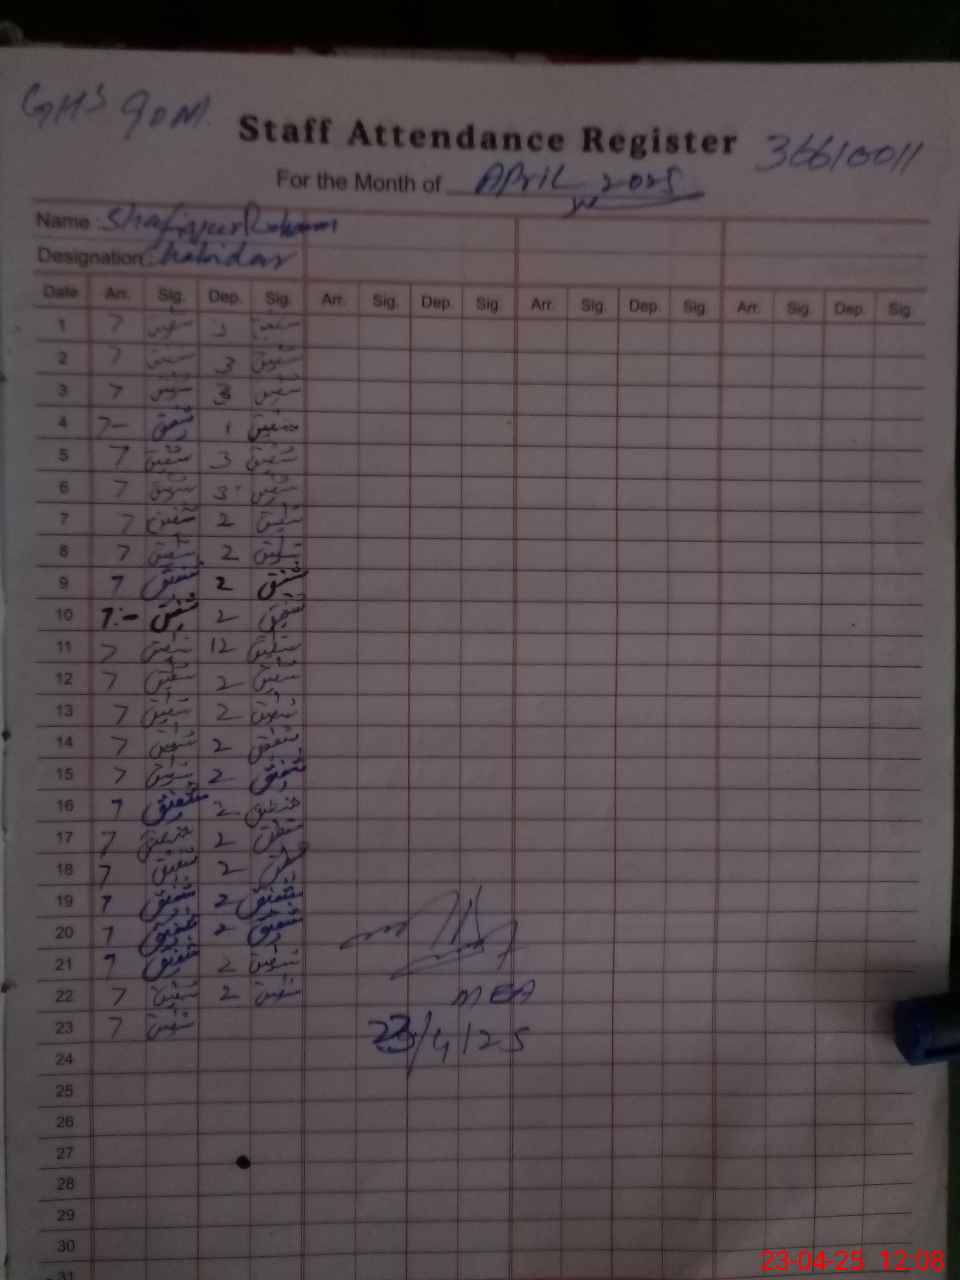 GHS
Staff Attendance Register 36610011
For the Month of April 2025
Name : Shafiq ur Rehman
Designation : Chokidar
Date Arr. Sig. Dep. Sig. Arr. Sig. Dep. Sig. Arr. Sig. Dep. Sig. Arr. Sig. Dep. Sig.
1 7 شفیق 3 شفیق
2 7 شفیق 3 شفیق
3 7 شفیق 3 شفیق
4 7- شفیق 1 شفیق
5 7 شفیق 3 شفیق
6 7 شفیق 3 شفیق
7 7 شفیق 2 شفیق
8 7 شفیق 2 شفیق
9 7 شفیق 2 شفیق
10 7:- شفیق 2 شفیق
11 7 شفیق 12 شفیق
12 7 شفیق 2 شفیق
13 7 شفیق 2 شفیق
14 7 شفیق 2 شفیق
15 7 شفیق 2 شفیق
16 7 شفیق 2 شفیق
17 7 شفیق 2 شفیق
18 7 شفیق 2 شفیق
19 7 شفیق 2 شفیق
20 7 شفیق 2 شفیق
21 7 شفیق 2 شفیق
22 7 شفیق 2 شفیق
MEA
23 7 شفیق
23/4/25
24
25
26
27
28
29
30
31
23-04-25 12:08